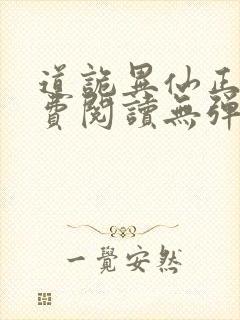 道詭異仙正
費閱讀無彈
一覺安然